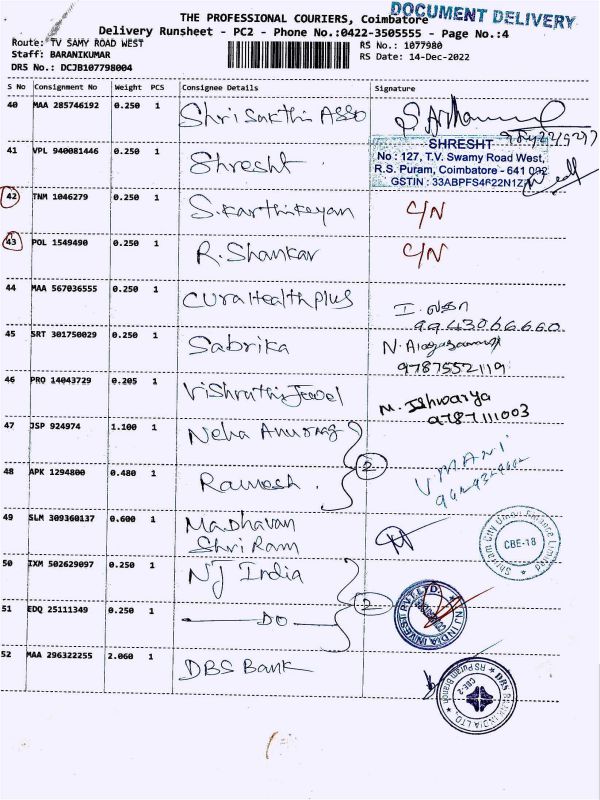 THE PROFESSIONAL COURIERS, Coimbatore
DOCUMENT DELIVERY
Delivery Runsheet - PC2 - Phone No.:0422-3505555 - Page No.:4
Route: TV SAMY ROAD WEST
Staff: BARANIKUMAR
DRS No.: DCJB107798004
RS No.: 1077980
RS Date: 14-Dec-2022
S No Consignment No Weight PCS Consignee Details Signature
40 MAA 285746192 0.250 1 Shri Sakthi Asso
41 VPL 940081446 0.250 1 Shresht
SHRESHT
No : 127, T.V. Swamy Road West,
R.S. Puram, Coimbatore - 641 002
GSTIN : 33ABPFS4622N1Z
42 TNM 1046279 0.250 1 S.Karthikeyan C/N
43 POL 1549490 0.250 1 R.Shankar C/N
44 MAA 567036555 0.250 1 Cura Health plus
9943066660
45 SRT 301750029 0.250 1 Sabrika
9787552119
46 PRO 14043729 0.205 1 Vishruthi Jewel M. Ishwarya
9787111003
47 JSP 924974 1.100 1 Neha Anurag
2
48 APK 1294800 0.480 1 Ramesh. V MANI
49 SLM 309360137 0.600 1 Madhavan
Shri Ram
Shriram City Union Finance Limited
CBE-18
50 IXM 502629097 0.250 1 NJ India
2
NJ INDIA INVEST PVT. LTD.
51 EDQ 25111349 0.250 1 DO
52 MAA 296322255 2.060 1 DBS Bank
DBS BANK INDIA LTD.,
CBE-2
RS Puram Branch